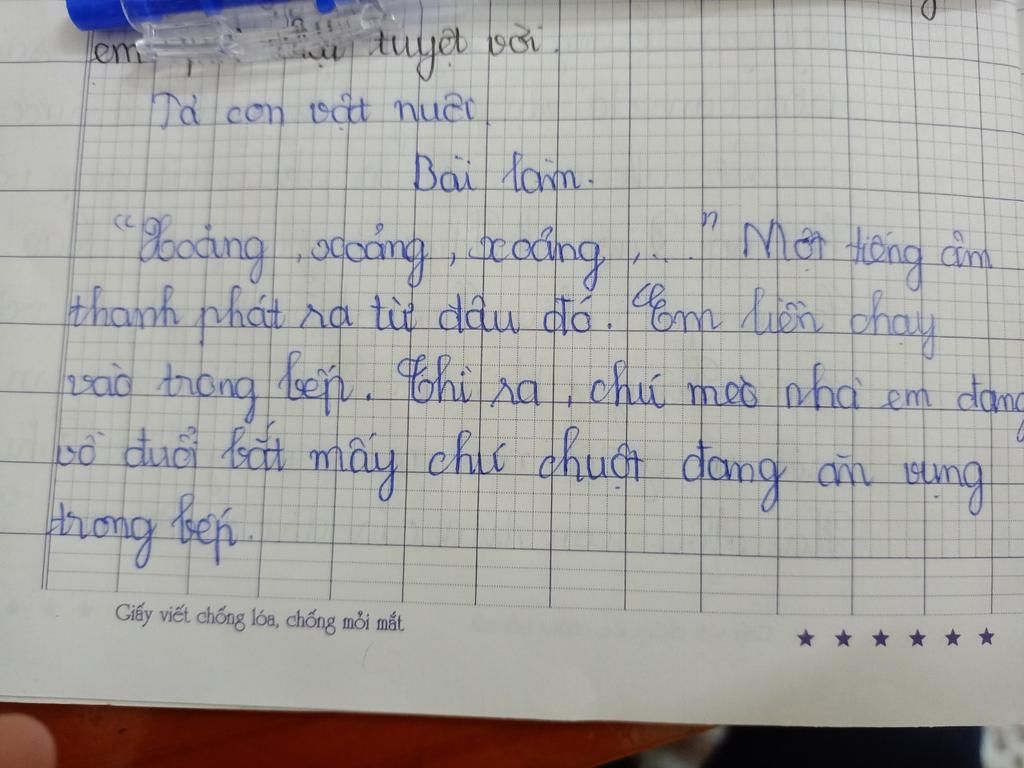 em tuyệt vời.
Tả con vật nuôi
Bài làm.
"Xoảng, xoảng, xoảng, ..." Một tiếng âm
thanh phát ra từ dâu đó. Em liền chạy
vào trong bếp. Thì ra, chú mèo nhà em đang
vồ đuổi bắt mấy chú chuột đang ăn vụng
trong bếp.
Giấy viết chống lóa, chống mỏi mắt